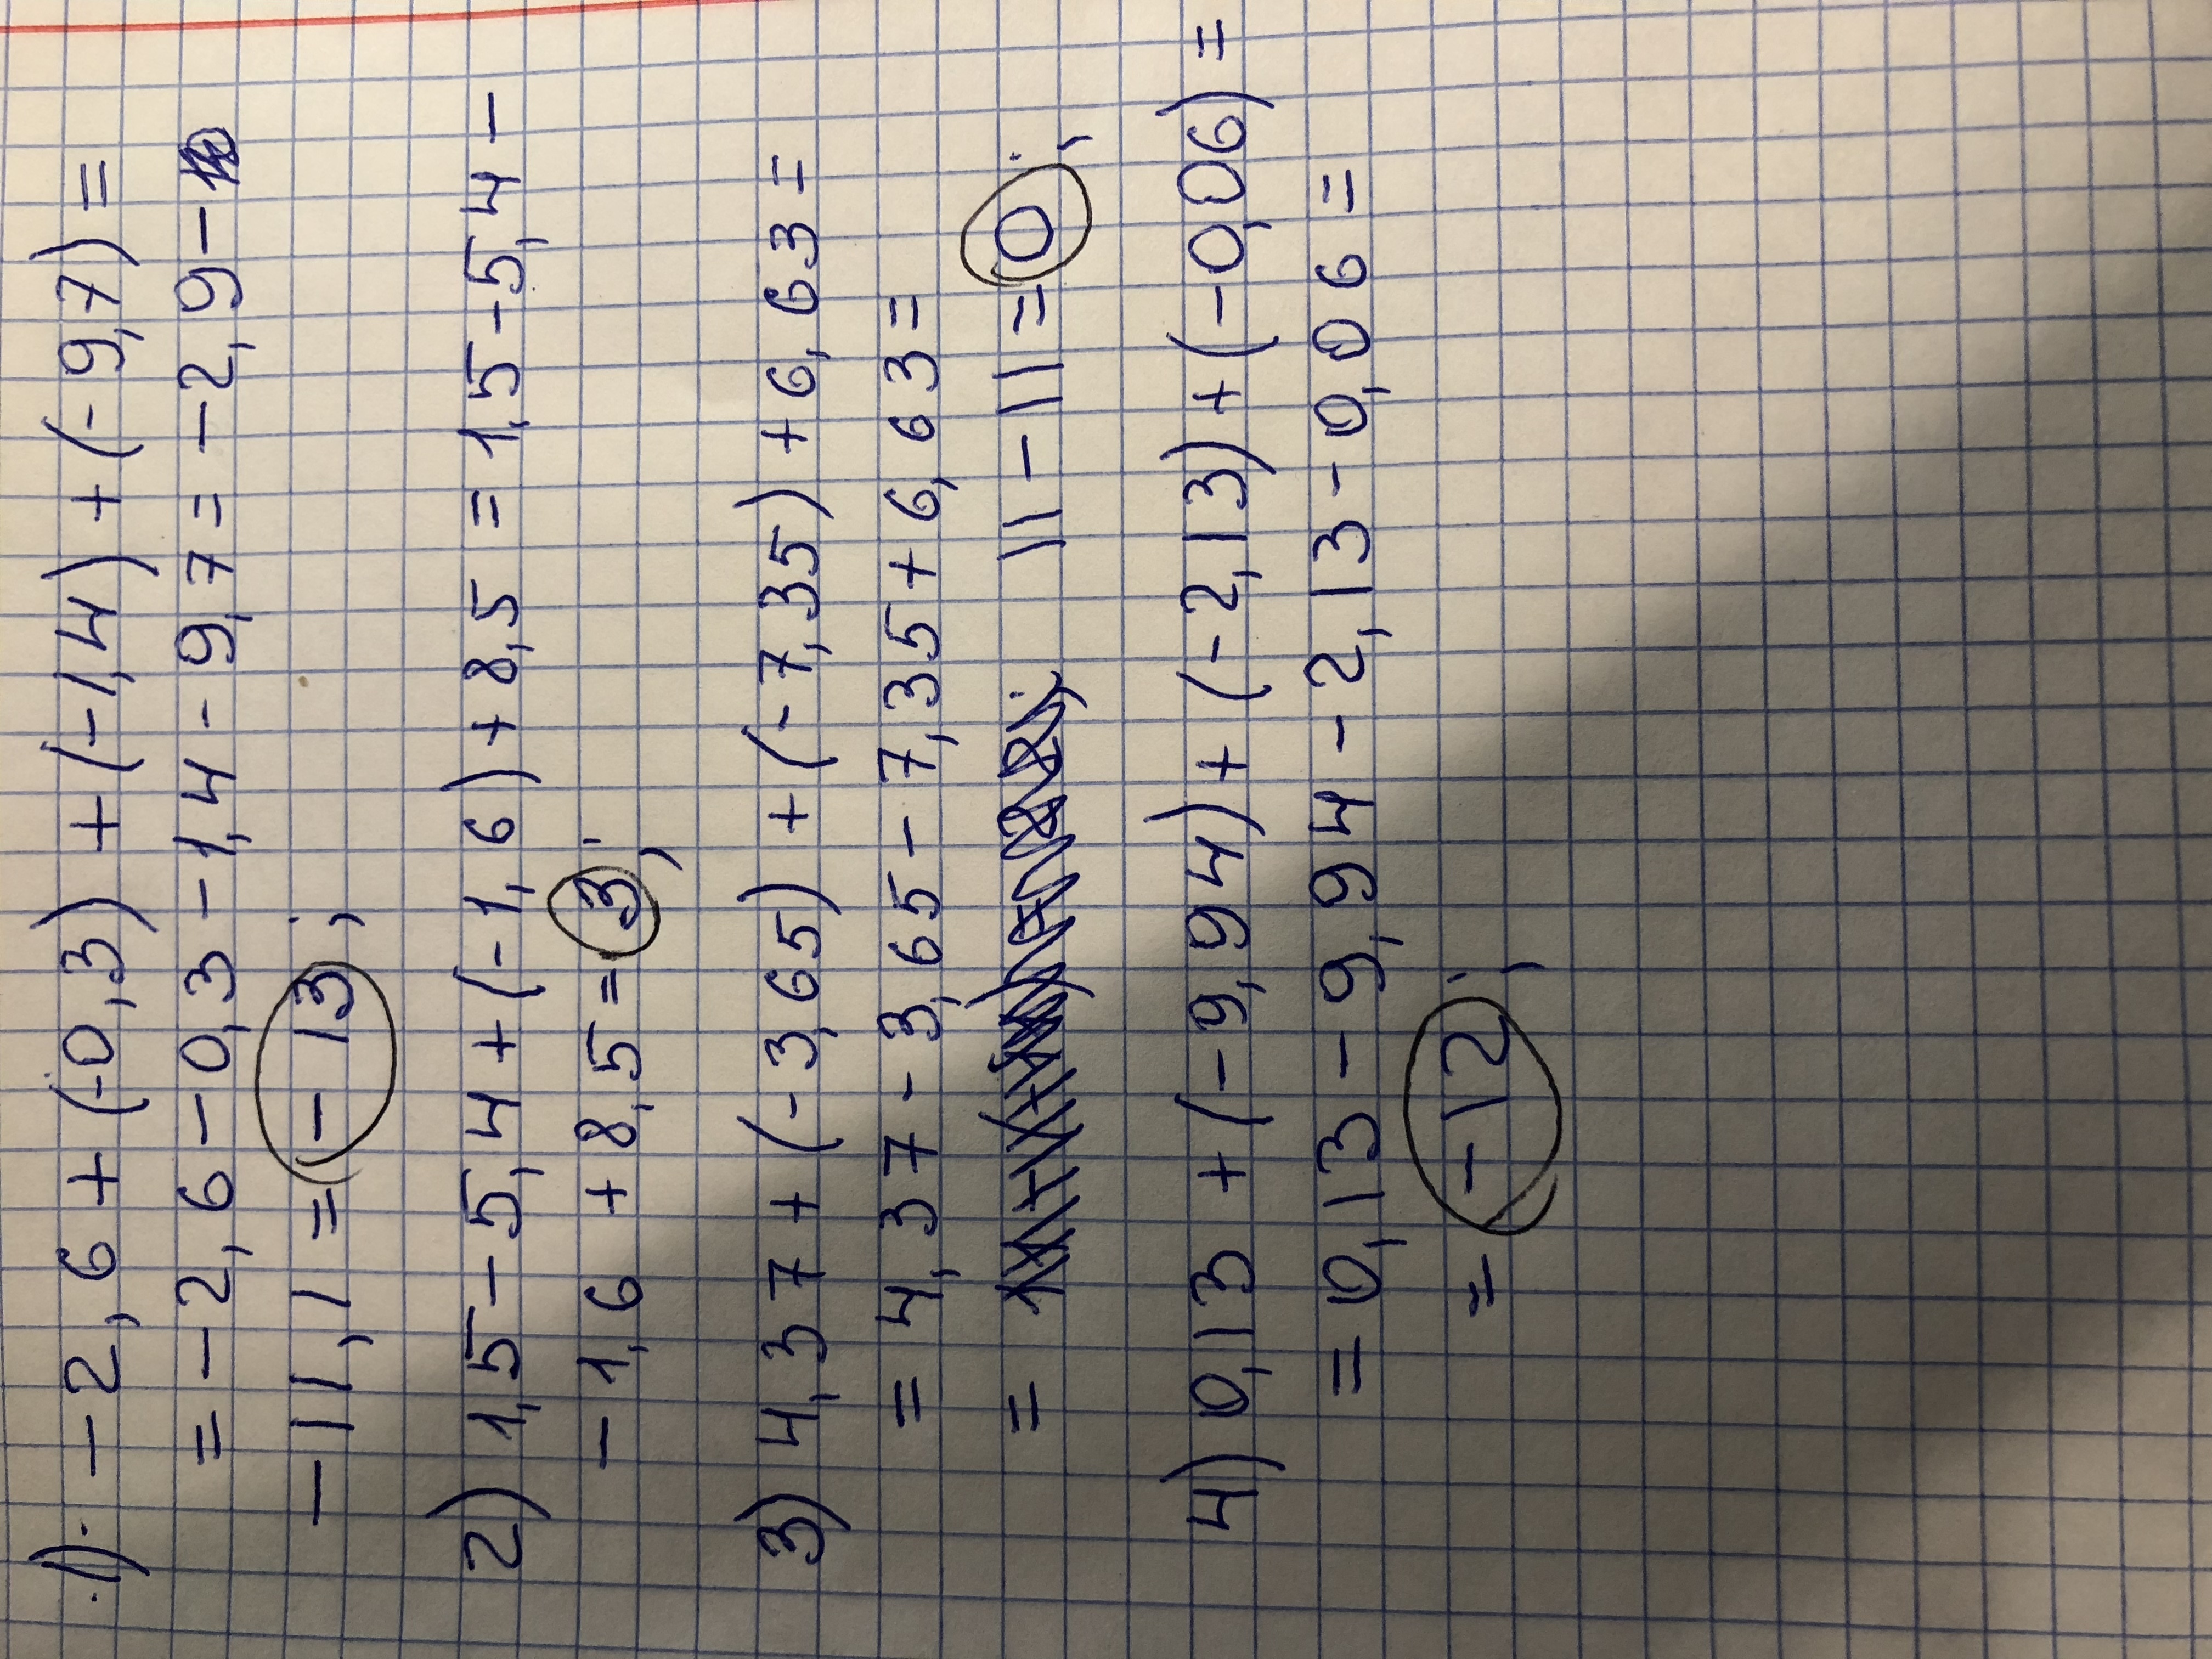 1) -2,6 + (-0,3) + (-1,4) + (-9,7) =
= -2,6 - 0,3 - 1,4 - 9,7 = -2,9 -
-11,1 = -13;
2) 1,5 - 5,4 + (-1,6) + 8,5 = 1,5 - 5,4 -
- 1,6 + 8,5 = 3;
3) 4,37 + (-3,65) + (-7,35) + 6,63 =
= 4,37 - 3,65 - 7,35 + 6,63 =
= 11 - 11 = 0;
4) 0,13 + (-9,94) + (-2,13) + (-0,06) =
= 0,13 - 9,94 - 2,13 - 0,06 =
= -12;